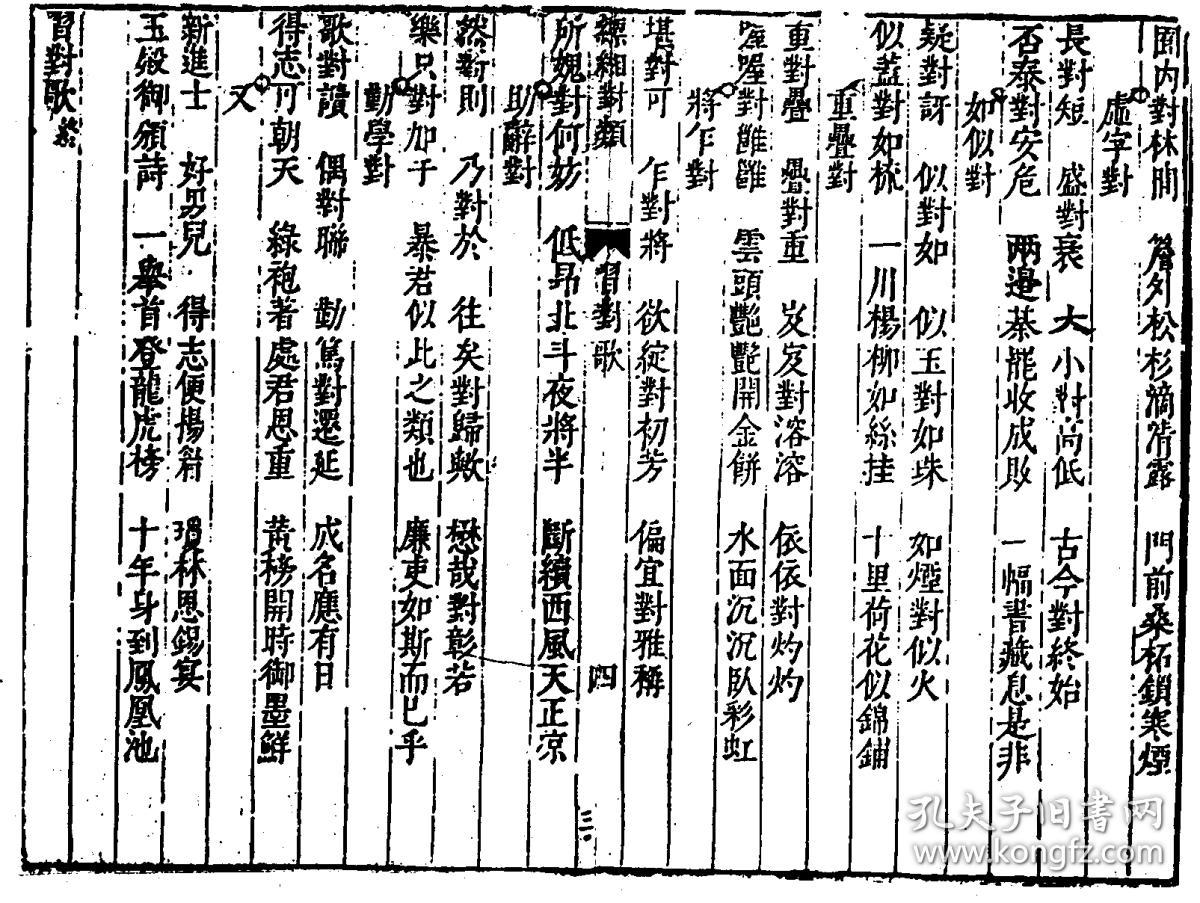 園内對林間 簷外松杉滴清露 門前桑柘鎖寒煙
虛字對
長對短 盛對衰 大小對高低 古今對終始
否泰對安危 两邉棊罷收成敗 一幅書藏息是非
如似對
疑對訝 似對如 似玉對如珠 如煙對似火
似蓋對如梳 一川楊柳如絲挂 十里荷花似錦鋪
重疊對
重對疊 疊對重 岌岌對溶溶 依依對灼灼
喔喔對雝雝 雲頭艷艷開金餅 水面沉沉臥彩虹
將乍對
堪對可 乍對將 欲綻對初芳 偏宜對雅稱
縹緗對類 習對歌 四 三
所媿對何妨 低昂北斗夜將半 斷續西風天正凉
助辭對
然對則 乃對於 往矣對歸歟 懋哉對彰若
樂只對加于 暴君似此之類也 廉吏如斯而已乎
勸學對
歌對讚 偶對聯 勤篤對遷延 成名應有日
得志可朝天 綠袍著處君恩重 黃榜開時御墨鮮
又
新進士 好男兒 得志便揚眉 瓊林恩錫宴
玉殿御頒詩 一舉首登龍虎榜 十年身到鳳凰池
習對歌終
孔夫子旧书网
www.kongfz.com